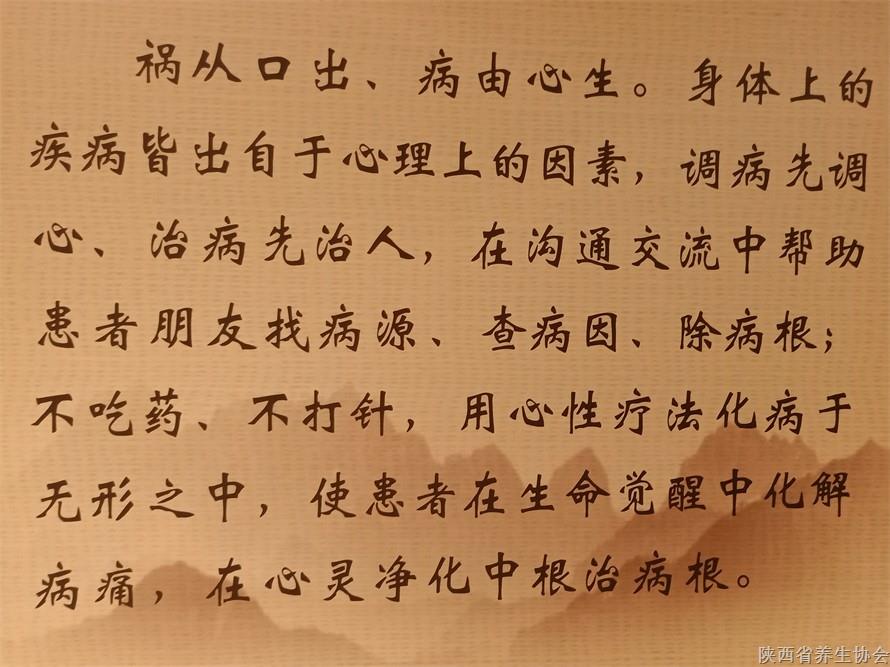 祸从口出、病由心生。身体上的
疾病皆出自于心理上的因素，调病先调
心、治病先治人，在沟通交流中帮助
患者朋友找病源、查病因、除病根；
不吃药、不打针，用心性疗法化病于
无形之中，使患者在生命觉醒中化解
病痛，在心灵净化中根治病根。
陕西省养生协会